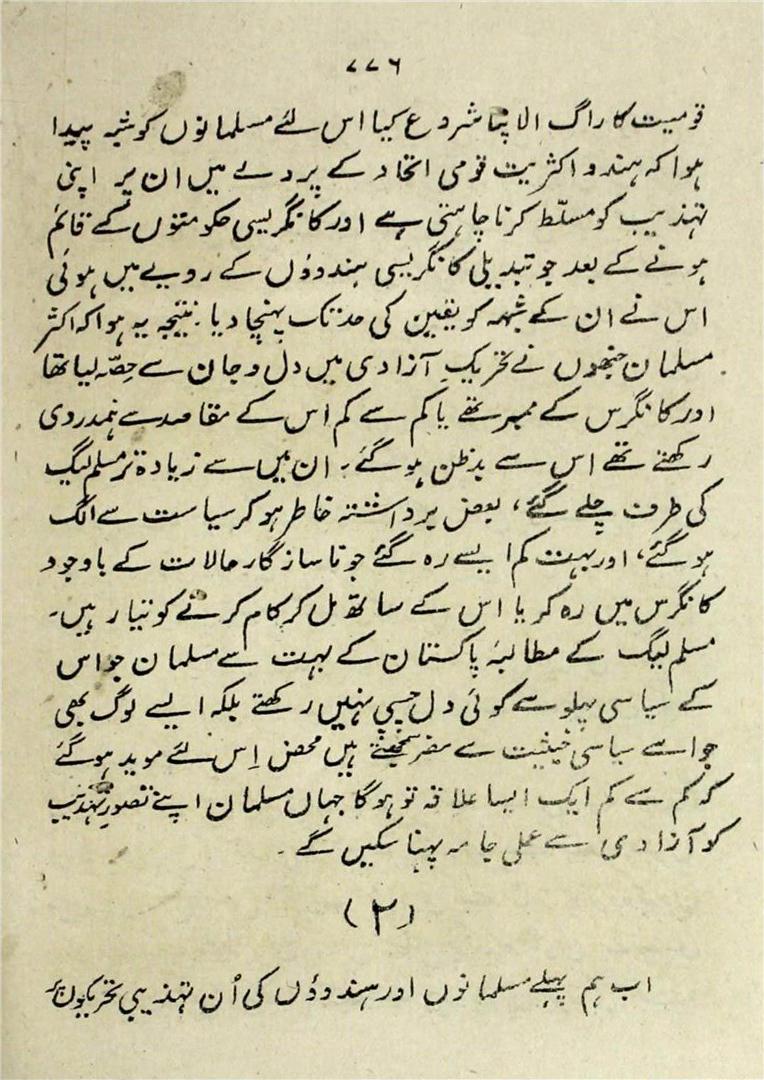 ۷۷۶
قومیت کا راگ الاپنا شروع کیا اس لئے مسلمانوں کو شبہ پیدا
ہوا کہ ہندو اکثریت قومی اتحاد کے پردے میں ان پر اپنی
تہذیب کو مسلّط کرنا چاہتی ہے اور کانگریسی حکومتوں کے قائم
ہونے کے بعد جو تبدیلی کانگریسی ہندوؤں کے رویے میں ہوئی
اس نے ان کے شبہہ کو یقین کی حد تک پہنچا دیا۔ نتیجہ یہ ہوا کہ اکثر
مسلمان جنھوں نے تحریکِ آزادی میں دل و جان سے حصّہ لیا تھا
اور کانگرس کے ممبر تھے یا کم سے کم اس کے مقاصد سے ہمدردی
رکھتے تھے اس سے بدظن ہو گئے۔ ان میں سے زیادہ تر مسلم لیگ
کی طرف چلے گئے، بعض برداشتہ خاطر ہو کر سیاست سے الگ
ہو گئے، اور بہت کم ایسے رہ گئے جو ناسازگار حالات کے باوجود
کانگرس میں رہ کر یا اس کے ساتھ مل کر کام کرنے کو تیار ہیں۔
مسلم لیگ کے مطالبۂ پاکستان کے بہت سے مسلمان جو اس
کے سیاسی پہلو سے کوئی دل چسپی نہیں رکھتے بلکہ ایسے لوگ بھی
جو اسے سیاسی حیثیت سے مضر سمجھتے ہیں محض اِس لئے موید ہو گئے
کہ کم سے کم ایک ایسا علاقہ تو ہوگا جہاں مسلمان اپنے تصورِ تہذیب
کو آزادی سے عملی جامہ پہنا سکیں گے۔
(۲)
اب ہم پہلے مسلمانوں اور ہندوؤں کی اُن تہذیبی تحریکوں پر